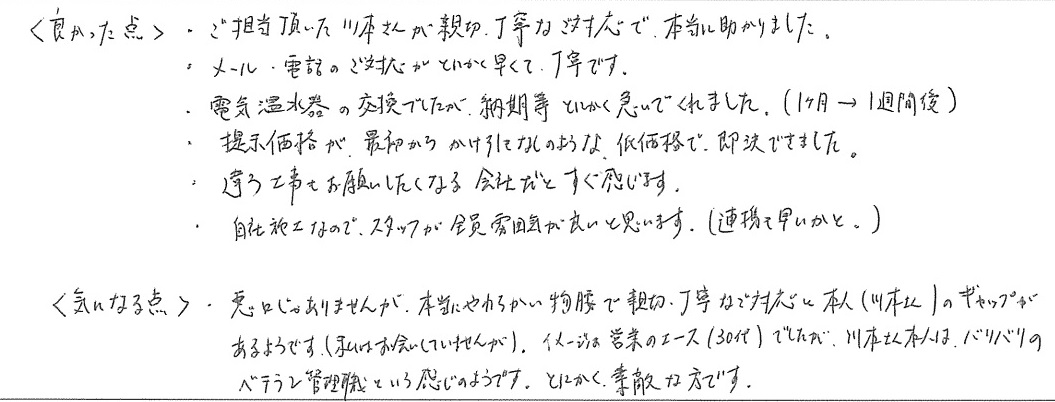 〈良かった点〉・ご担当頂いた川本さんが親切、丁寧なご対応で、本当に助かりました。
・メール・電話のご対応がとにかく早くて、丁寧です。
・電気温水器の交換でしたが、納期等とにかく急いでくれました。(1ヶ月→1週間後)
・提示価格が、最初からかけ引きなしのような、低価格で、即決できました。
・違う工事もお願いしたくなる会社だとすぐ感じます。
・自社施工なので、スタッフが全員雰囲気が良いと思います。(連携も早いかと。)
〈気になる点〉・悪口じゃありませんが、本当にやわらかい物腰で親切、丁寧なご対応と本人(川本さん)のギャップが
あるようです。(私はお会いしていませんが)。イメージは営業のエース(30代)でしたが、川本さん本人は、バリバリの
ベテラン管理職という感じのようです。とにかく、素敵な方です。